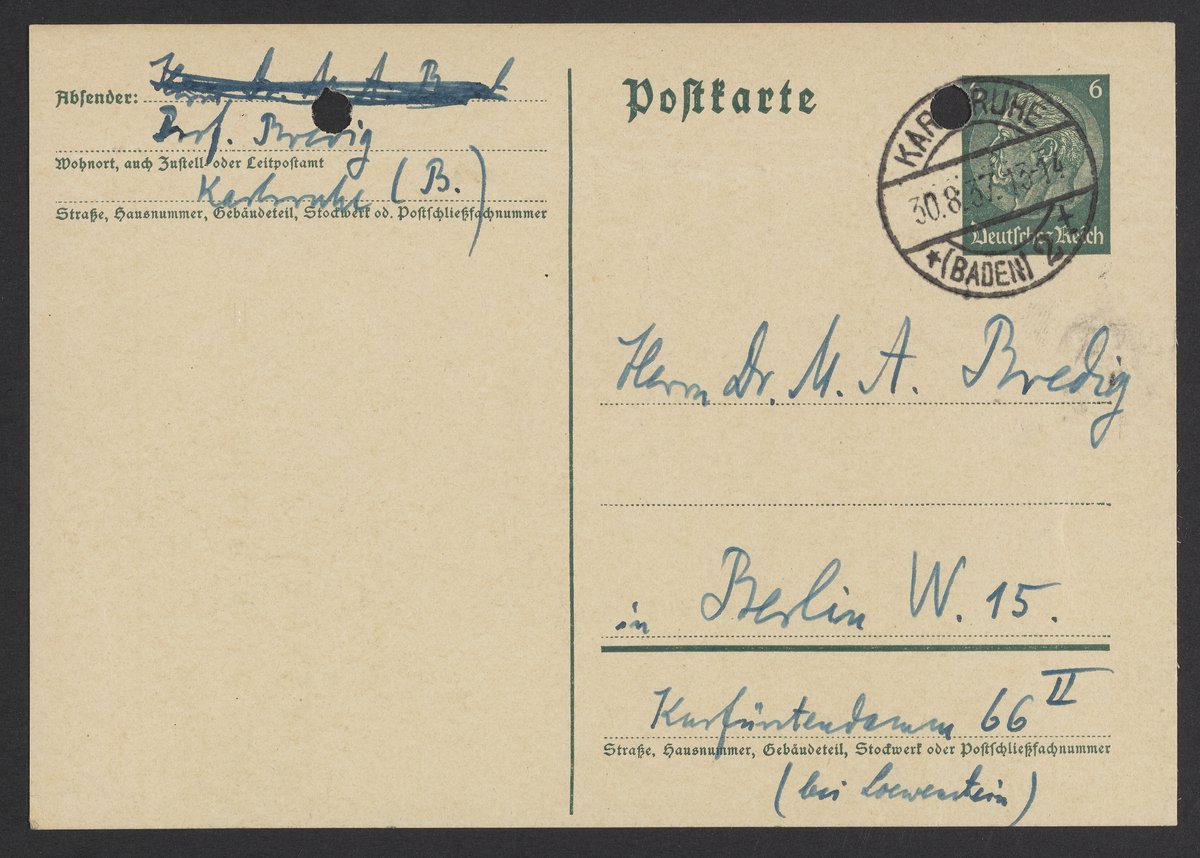 Absender: Herrn Dr. M. A. B
Prof. Bredig
Wohnort, auch Zustell- oder Leitpostamt
Karlsruhe (B.)
Straße, Hausnummer, Gebäudeteil, Stockwerk od. Postschließfachnummer
Postkarte
6
KARLSRUHE
30.8.37.13-14
Deutsches Reich
*(BADEN) 2 +
Herrn Dr. M. A. Bredig
in Berlin W. 15.
Kurfürstendamm 66 II
Straße, Hausnummer, Gebäudeteil, Stockwerk oder Postschließfachnummer
(bei Loewenstein)